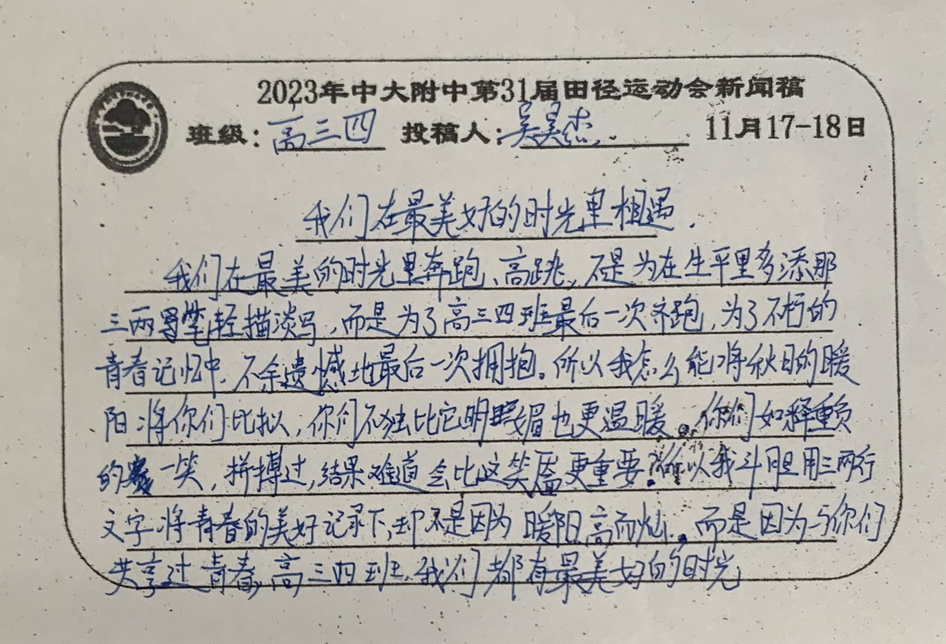 2023年中大附中第31届田径运动会新闻稿
班级：高三四 投稿人：吴昊杰 11月17-18日
我们在最美好的时光里相遇
我们在最美的时光里奔跑、高跳，不是为在生平里多添那
三两笔轻描淡写，而是为了高三四班最后一次齐跑，为了不朽的
青春记忆中，不余遗憾地最后一次拥抱。所以我怎么能将秋日的暖
阳将你们比拟，你们不独比它明媚也更温暖。你们如释重负
的一笑，拼搏过，结果难道会比这笑靥更重要？所以我斗胆用三两行
文字将青春的美好记录下，却不是因为暖阳高而灿。而是因为与你们
共享过青春，高三四班，我们都有最美好的时光